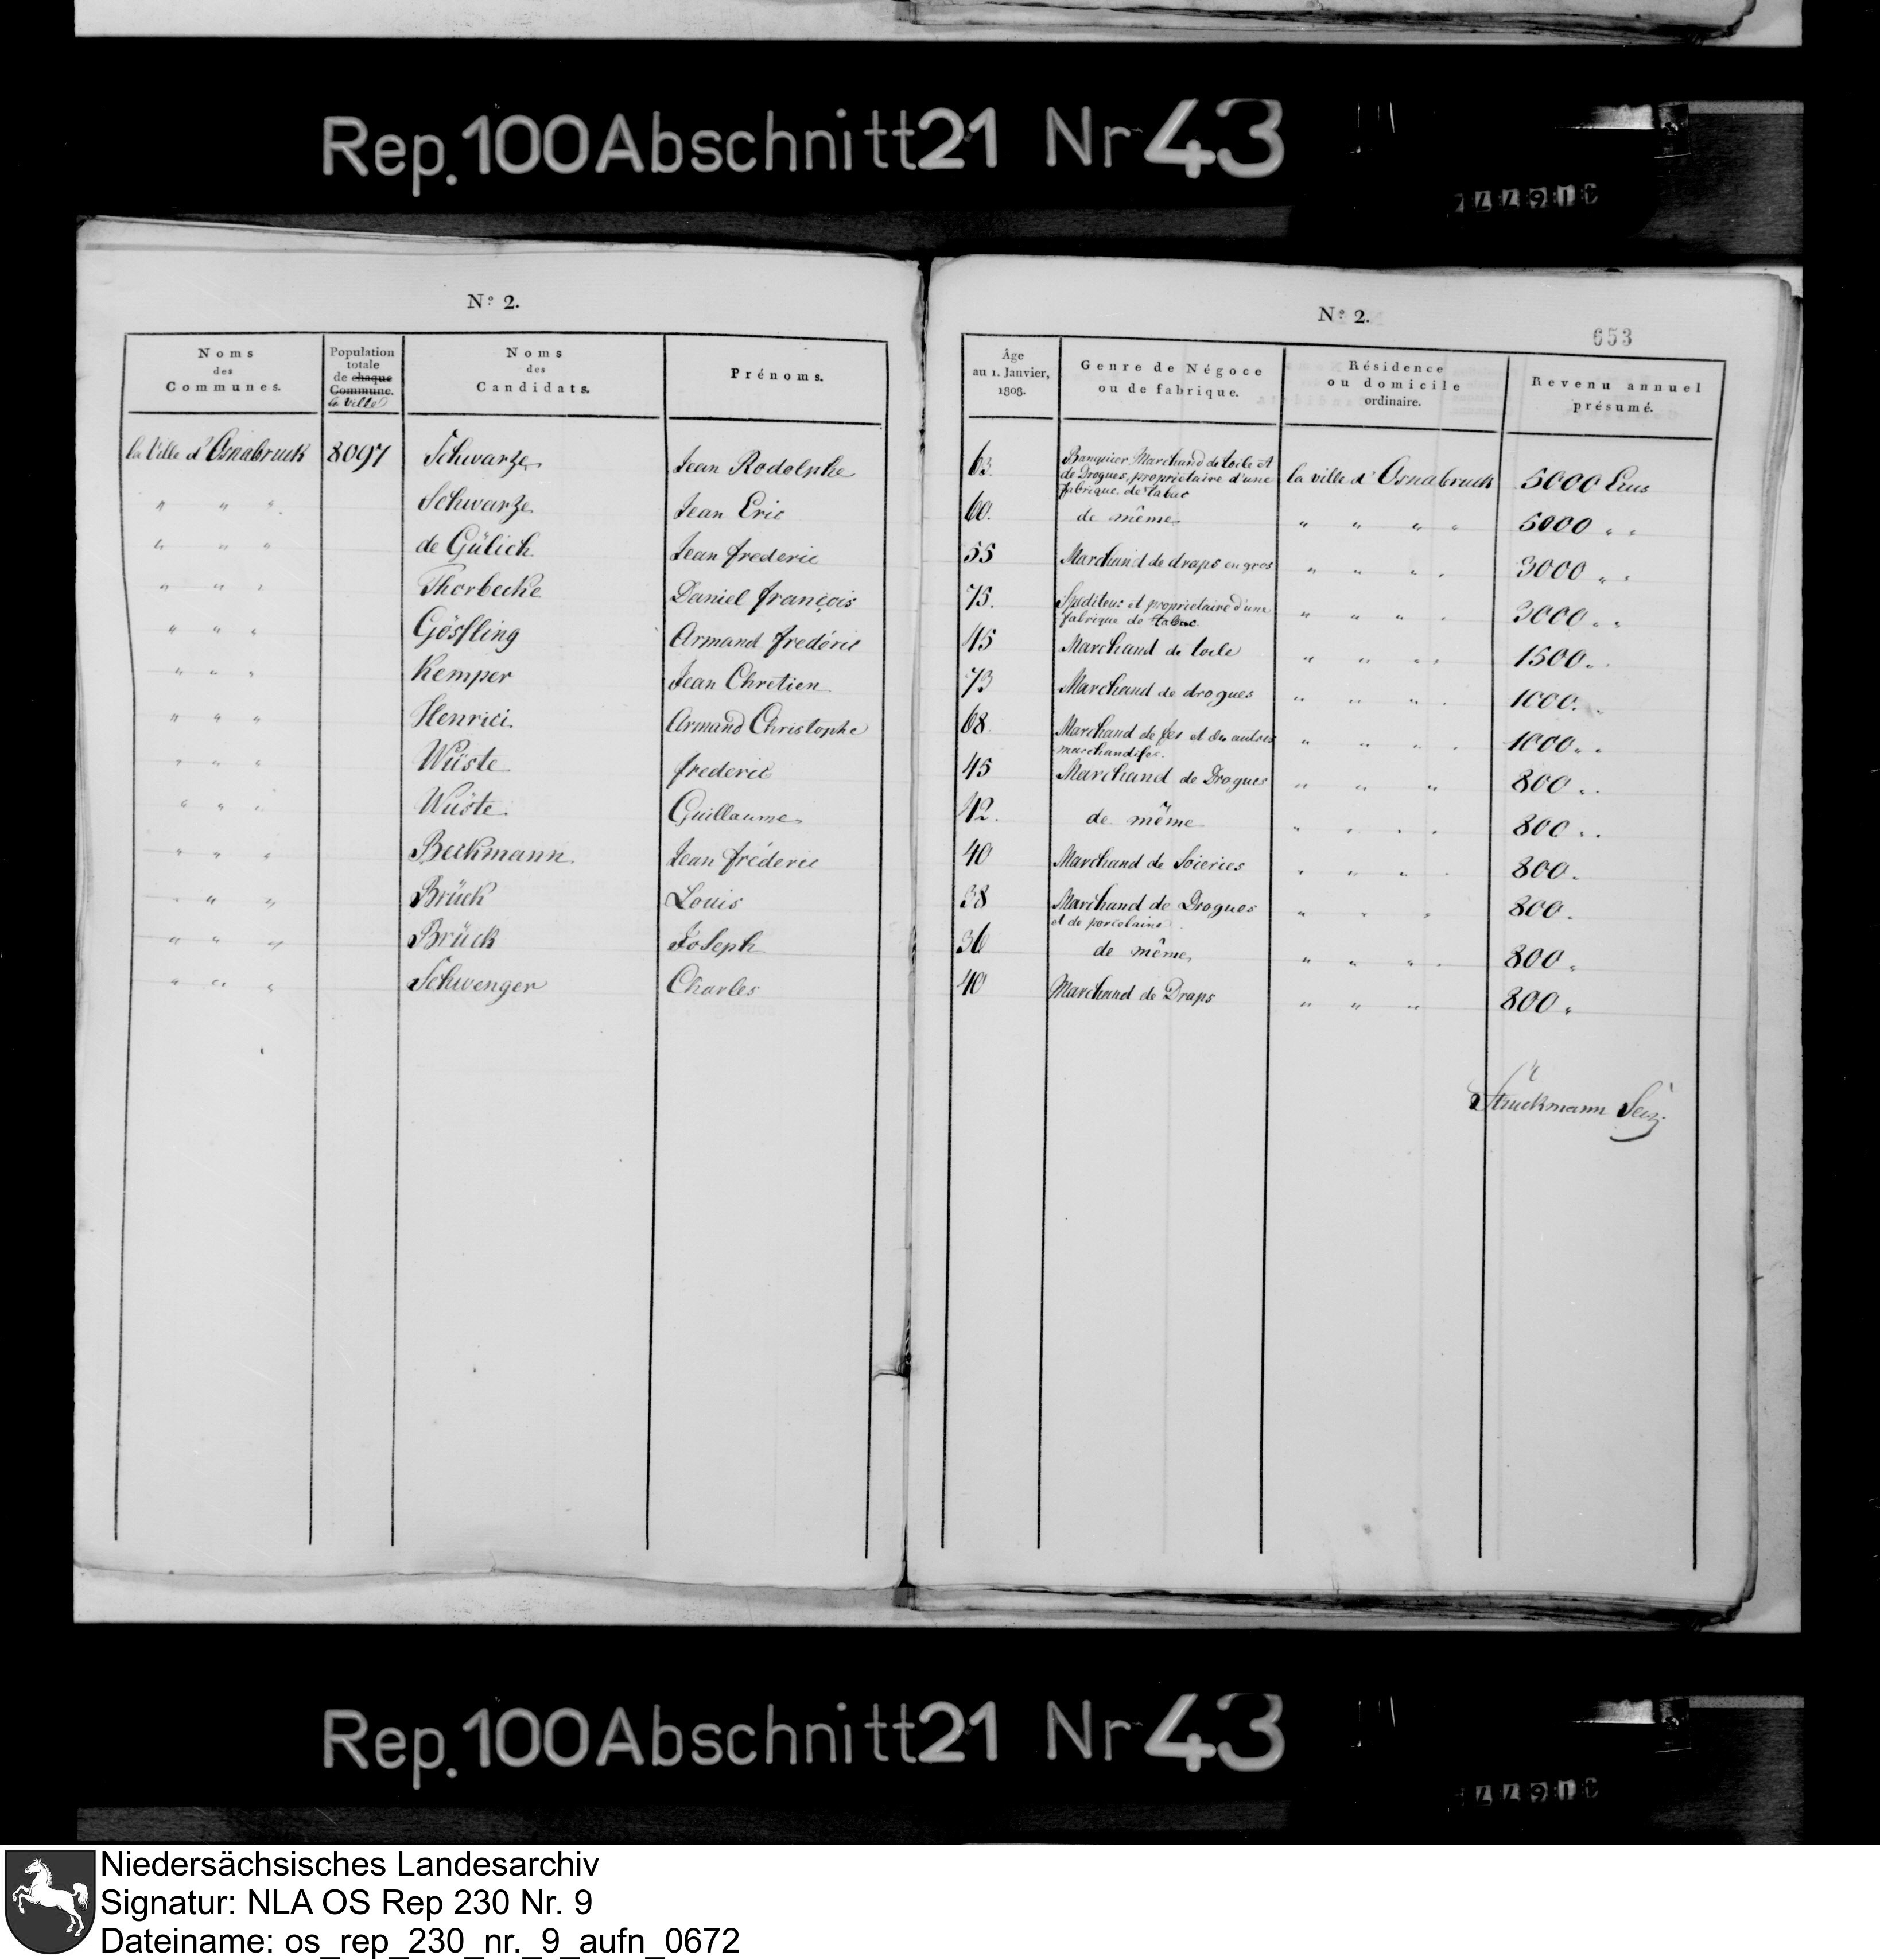 Rep. 100 Abschnitt 21 Nr 43
N.º 2.
Noms
des
Communes.
Population
totale
de chaque
Commune.
la ville
Noms
des
Candidats.
Prénoms.
la Ville d'Osnabruck 8097 Schwarze Jean Rodolphe
" " " Schwarze Jean Eric
" " " de Gülich Jean frederic
" " " Thorbecke Daniel françois
" " " Gösfling Armand fredéric
" " " Kemper Jean Chretien
" " " Henrici. Armand Christophe
" " " Wüste frederic
" " " Wüste Guillaume
" " " Beckmann Jean fréderic
" " " Brück Louis
" " " Brück Joseph
" " " Schwenger Charles
N.º 2.
653
Âge
au 1. Janvier,
1808.
Genre de Négoce
ou de fabrique.
Résidence
ou domicile
ordinaire.
Revenu annuel
présumé.
63. Banquier, Marchand de toile et
de Drogues, proprietaire d'une
fabrique de tabac
la ville d'Osnabruck 5000 Ecus
60. de même " " " " 5000 " "
55 Marchand de draps en gros " " " " 3000 " "
75. Spediteur et proprietaire d'une
fabrique de tabac " " " " 3000 " "
45 Marchand de toile " " " " 1500 " "
73 Marchand de drogues " " " " 1000. "
68. Marchand de fer et des autres
marchandises. " " " " 1000 " "
45 Marchand de Drogues " " " 800 " "
42. de même " " " " 800 " "
40 Marchand de Soieries " " " " 800 "
38 Marchand de Drogues
et de porcelaine " " " 800 "
36 de même, " " " " 800 "
40 Marchand de Draps " " " 800 "
Struckmann
Rep. 100 Abschnitt 21 Nr 43
Niedersächsisches Landesarchiv
Signatur: NLA OS Rep 230 Nr. 9
Dateiname: os_rep_230_nr._9_aufn_0672